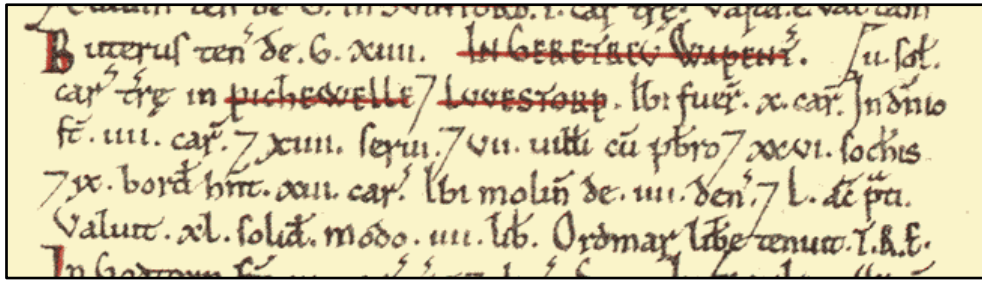 Buterus ten̄ de. G. xiiii. IN GERETREV Wapent̄. ii. sol.
car̄ tr̄ę in PICHEWELLE ⁊ LUVESTORP. Ibi fuer̄. x. car̄. In dn̄io
st̄. iiii. car̄. ⁊ xiiii. serui. ⁊ vii. uilli cū pb̄ro ⁊ xxvi. sochis
⁊ ix. bord̄ hn̄t. xiii. car̄. Ibi molin̄ de. iiii. den̄. ⁊ L. ac̄ p̄ti.
Valuit. xl. solid̄. modo. iiii. lib̄. Ordmar lib̄e tenuit. T.R.E.